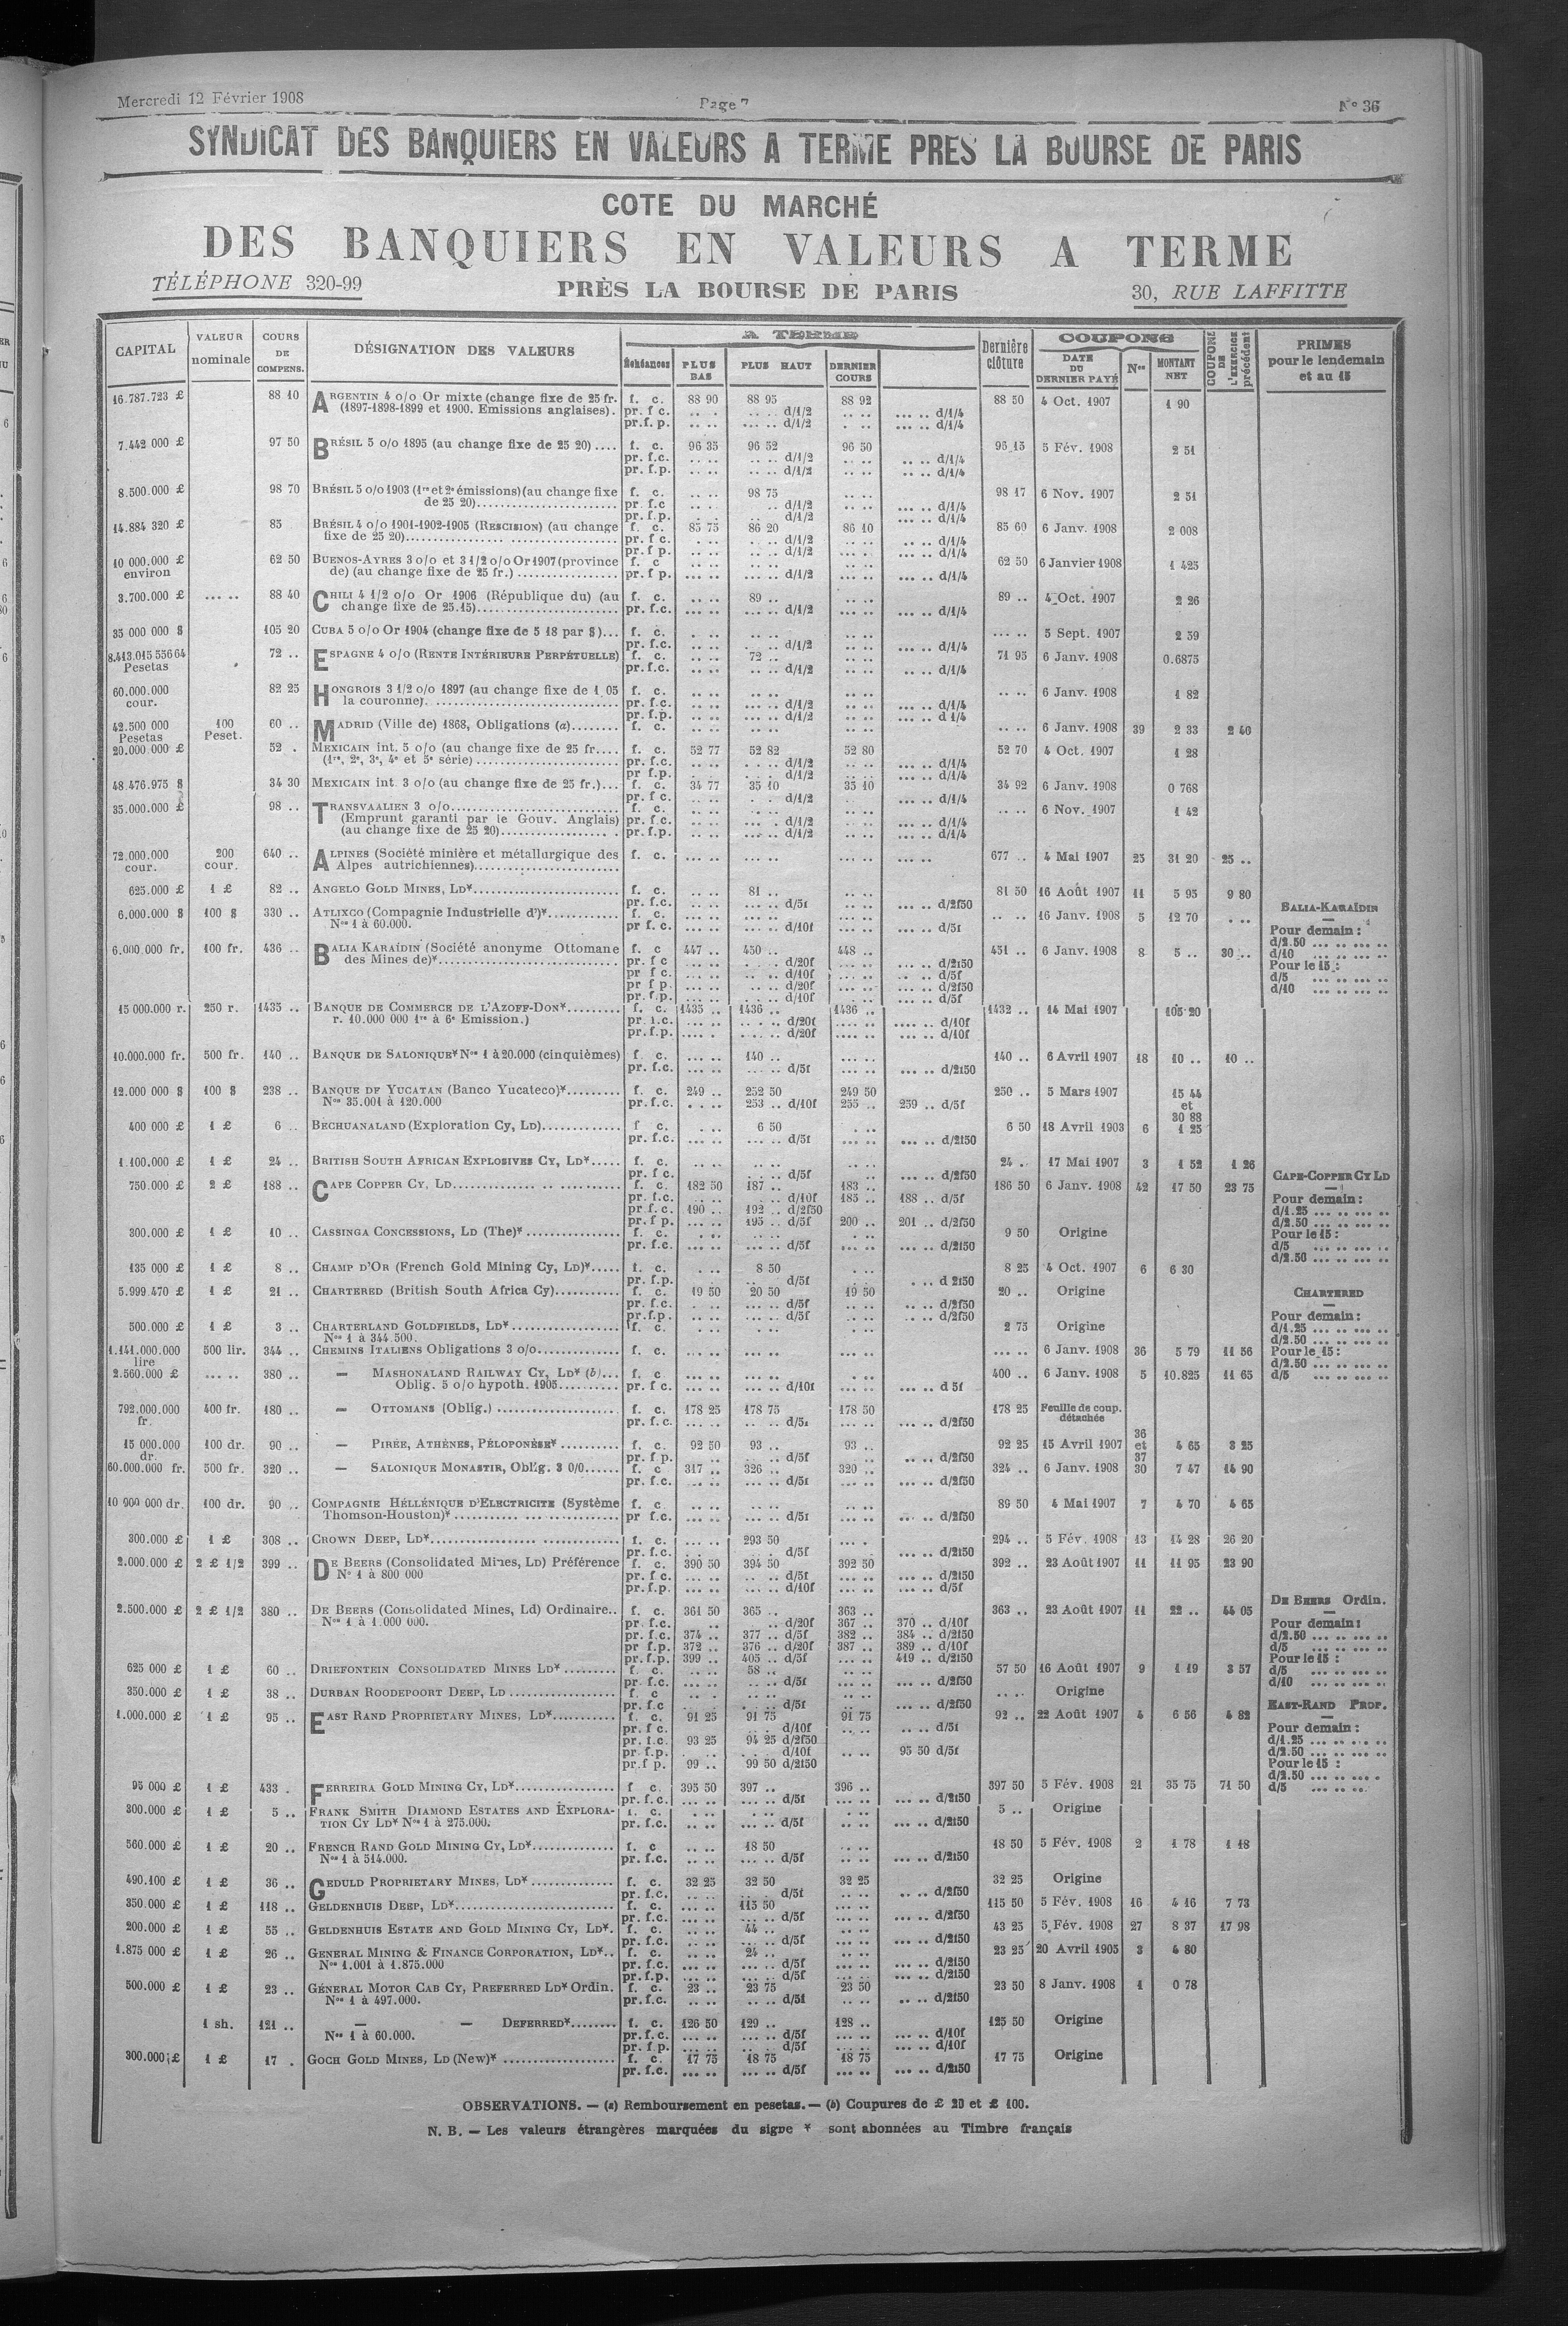 Mercredi 12 Février 1908
Page 7
N° 36
SYNDICAT DES BANQUIERS EN VALEURS A TERME PRES LA BOURSE DE PARIS
COTE DU MARCHÉ
DES BANQUIERS EN VALEURS A TERME
TÉLÉPHONE 320-99
PRÈS LA BOURSE DE PARIS
30, RUE LAFFITTE
CAPITAL
VALEUR nominale
COURS DE COMPENS.
DÉSIGNATION DES VALEURS
A TERME
Échéances
PLUS BAS
PLUS HAUT
DERNIER COURS
Dernière clôture
COUPONS
DATE DU DERNIER PAYÉ
Nos
MONTANT NET
COUPONS DE L'EXERCICE précédent
PRIMES pour le lendemain et au 15
16.787.723 £ 88 10 ARGENTIN 4 o/o Or mixte (change fixe de 25 fr. f. c. 88 90 88 95 88 92 88 50 4 Oct. 1907 1 90
(1897-1898-1899 et 1900. Emissions anglaises). pr. f c. d/1/2 d/1/4
pr.f. p. d/1/2 d/1/4
7.442 000 £ 97 50 BRÉSIL 5 o/o 1895 (au change fixe de 25 20) .... f. c. 96 35 96 52 96 50 95 15 5 Fév. 1908 2 51
pr. f.c. d/1/2 d/1/4
pr. f.p. d/1/2 d/1/4
8.500.000 £ 98 70 BRÉSIL 5 o/o 1903 (1re et 2e émissions)(au change fixe f. c. 98 75 98 17 6 Nov. 1907 2 51
de 25 20) pr. f.c d/1/2 d/1/4
pr. f.p. d/1/2 d/1/4
14.884 320 £ 85 BRÉSIL 4 o/o 1901-1902-1905 (RESCISION) (au change f. c. 85 75 86 20 86 10 85 60 6 Janv. 1908 2 008
fixe de 25 20) pr. f c. d/1/2 d/1/4
pr. f p. d/1/2 d/1/4
10 000.000 £ environ 62 50 BUENOS-AYRES 3 o/o et 3 1/2 o/o Or 1907 (province f. c 62 50 6 Janvier 1908 1 425
de) (au change fixe de 25 fr.) pr. f p. d/1/2 d/1/4
3.700.000 £ 88 40 CHILI 4 1/2 o/o Or 1906 (République du) (au f. c. 89 .. 89 .. 4 Oct. 1907 2 26
change fixe de 25.15) pr. f.c. d/1/2 d/1/4
35 000 000 $ 105 20 CUBA 5 o/o Or 1904 (change fixe de 5 18 par $)... f. c. 5 Sept. 1907 2 59
pr. f.c. d/1/2 d/1/4
8.413.015 556 64 Pesetas 72 .. ESPAGNE 4 o/o (RENTE INTÉRIEURE PERPÉTUELLE) f. c. 72 .. 71 95 6 Janv. 1908 0.6875
pr.f.c. d/1/2 d/1/4
60.000.000 cour. 82 25 HONGROIS 3 1/2 o/o 1897 (au change fixe de 1 05 f. c. 6 Janv. 1908 1 82
la couronne) pr. f.c. d/1/2 d/1/4
pr. f.p. d/1/2 d 1/4
42.500 000 Pesetas 100 Peset. 60 .. MADRID (Ville de) 1868, Obligations (a) f. c. 6 Janv. 1908 39 2 33 2 40
20.000.000 £ 52 . MEXICAIN int. 5 o/o (au change fixe de 25 fr.... f. c. 52 77 52 82 52 80 52 70 4 Oct. 1907 1 28
(1re, 2e, 3e, 4e et 5e série) pr. f.c. d/1/2 d/1/4
pr f.p. d/1/2 d/1/4
48.476.975 $ 34 30 MEXICAIN int. 3 o/o (au change fixe de 25 fr.)... f. c. 34 77 35 10 35 10 34 92 6 Janv. 1908 0 768
pr. f c. d/1/2 d/1/4
35.000.000 £ 98 .. TRANSVAALIEN 3 o/o f. c. 6 Nov. 1907 1 42
(Emprunt garanti par le Gouv. Anglais) pr. f.c. d/1/2 d/1/4
(au change fixe de 25 20) pr. f.p. d/1/2 d/1/4
72.000.000 cour. 200 cour. 640 .. ALPINES (Société minière et métallurgique des f. c. 677 .. 4 Mai 1907 25 31 20 25 ..
Alpes autrichiennes)
625.000 £ 1 £ 82 .. ANGELO GOLD MINES, LD* f. c. 81 .. 81 50 16 Août 1907 11 5 95 9 80
pr. f.c. d/5f d/2f50
6.000.000 $ 100 $ 330 .. ATLIXCO (Compagnie Industrielle d')* f. c. 16 Janv. 1908 5 12 70
Nos 1 à 60.000. pr f. c. d/10f d/5f
BALIA-KARAÏDIN
Pour demain :
d/2.50
d/10
Pour le 15 :
d/5
d/10
6.000.000 fr. 100 fr. 436 .. BALIA KARAÏDIN (Société anonyme Ottomane f. c 447 .. 450 .. 448 .. 451 .. 6 Janv. 1908 8 5 .. 30 ..
des Mines de)* pr. f c d/20f d/2f50
pr f c. d/10f d/5f
pr f p. d/20f d/2f50
pr. f.p. d/10f d/5f
15 000.000 r. 250 r. 1435 .. BANQUE DE COMMERCE DE L'AZOFF-DON* f. c. 1435 .. 1436 .. 1436 .. 1432 .. 14 Mai 1907 105 20
r. 10.000 000 1re à 6e Emission.) pr. f.c. d/20f d/10f
pr. f.p. d/20f d/10f
10.000.000 fr. 500 fr. 140 .. BANQUE DE SALONIQUE* Nos 1 à 20.000 (cinquièmes) f c. 140 .. 140 .. 6 Avril 1907 18 10 .. 10 ..
pr. f.c. d/5f d/2f50
12.000 000 $ 100 $ 238 .. BANQUE DE YUCATAN (Banco Yucateco)* f. c. 249 .. 252 50 249 50 250 .. 5 Mars 1907 15 44 et 30 88
Nos 35.001 à 120.000 pr. f.c. 253 .. d/10f 255 .. 259 .. d/5f
400 000 £ 1 £ 6 .. BECHUANALAND (Exploration Cy, LD) f c. 6 50 6 50 18 Avril 1903 6 1 25
pr. f.c. d/5f d/2f50
1.100.000 £ 1 £ 24 .. BRITISH SOUTH AFRICAN EXPLOSIVES CY, LD* f. c. 24 . 17 Mai 1907 3 1 52 1 26
pr. f c. d/5f d/2f50
750.000 £ 2 £ 188 .. CAPE COPPER CY, LD f. c. 182 50 187 .. 183 .. 186 50 6 Janv. 1908 42 17 50 23 75
pr. f.c. d/10f 185 .. 188 .. d/5f
pr f. c. 190 .. 192 .. d/2f50
pr. f p. 195 .. d/5f 200 .. 201 .. d/2f50
CAPE-COPPER CY LD
Pour demain :
d/1.25
d/2.50
Pour le 15 :
d/5
d/2.50
300.000 £ 1 £ 10 .. CASSINGA CONCESSIONS, LD (The)* f. c. 9 50 Origine
pr. f.c. d/5f d/2f50
135 000 £ 1 £ 8 .. CHAMP D'OR (French Gold Mining Cy, LD)* f. c. 8 50 8 25 4 Oct. 1907 6 6 30
pr. f.p. d/5f d 2f50
5.999.470 £ 1 £ 21 .. CHARTERED (British South Africa Cy) f. c. 19 50 20 50 19 50 20 .. Origine
pr. f.c. d/5f d/2f50
pr.f.p. d/5f d/2f50
CHARTERED
Pour demain :
d/1.25
d/2.50
Pour le 15 :
d/2.50
d/5
500.000 £ 1 £ 3 .. CHARTERLAND GOLDFIELDS, LD* f. c. 2 75 Origine
Nos 1 à 344.500.
1.141.000.000 lire 500 lir. 344 .. CHEMINS ITALIENS Obligations 3 o/o f. c. 6 Janv. 1908 36 5 79 11 56
2.560.000 £ 380 .. — MASHONALAND RAILWAY CY, LD* (b) f. c 400 .. 6 Janv. 1908 5 10.825 11 65
Oblig. 5 o/o hypoth. 1905 pr. f c. d/10f d 5f
792.000.000 fr. 400 fr. 180 .. — OTTOMANS (Oblig.) f. c. 178 25 178 75 178 50 178 25 Feuille de coup. détachée
pr. f.c. d/5f d/2f50
15 000.000 dr. 100 dr. 90 .. — PIRÉE, ATHÈNES, PÉLOPONÈSE* f. c. 92 50 93 .. 93 .. 92 25 15 Avril 1907 36 et 37 4 65 3 25
pr. f p. d/5f d/2f50
60.000.000 fr. 500 fr. 320 .. — SALONIQUE MONASTIR, Oblig. 3 0/0 f. c 317 .. 326 .. 320 .. 324 .. 6 Janv. 1908 30 7 47 14 90
pr. f.c. d/5f d/2f50
10 000 000 dr. 100 dr. 90 .. COMPAGNIE HÉLLÉNIQUE D'ELECTRICITE (Système f. c 89 50 4 Mai 1907 7 4 70 4 65
Thomson-Houston)* pr f.c. d/5f d/2f50
300.000 £ 1 £ 308 .. CROWN DEEP, LD* f. c. 293 50 294 .. 5 Fév. 1908 13 14 28 26 20
pr. f.c. d/5f d/2f50
2.000.000 £ 2 £ 1/2 399 .. DE BEERS (Consolidated Mines, LD) Préférence f. c. 390 50 394 50 392 50 392 .. 23 Août 1907 11 11 95 23 90
N° 1 à 800 000 pr. f.c. d/5f d/2f50
pr.f.p. d/10f d/5f
2.500.000 £ 2 £ 1/2 380 .. DE BEERS (Consolidated Mines, Ld) Ordinaire.. f. c. 361 50 365 .. 363 .. 363 .. 23 Août 1907 11 22 .. 44 05
Nos 1 à 1.000 000. pr. f.c. d/20f 367 .. 370 .. d/10f
pr. f.c. 374 .. 377 .. d/5f 382 .. 384 .. d/2f50
pr f.p. 372 .. 376 .. d/20f 387 .. 389 .. d/10f
pr. f.p. 399 .. 405 .. d/5f 419 .. d/2f50
DE BEERS Ordin.
Pour demain :
d/2.50
d/5
Pour le 15 :
d/5
d/10
625 000 £ 1 £ 60 .. DRIEFONTEIN CONSOLIDATED MINES LD* f. c. 58 .. 57 50 16 Août 1907 9 1 19 3 57
pr. f.c. d/5f d/2f50
350.000 £ 1 £ 38 .. DURBAN ROODEPOORT DEEP, LD f. c Origine
pr. f.c d/5f d/2f50
1.000.000 £ 1 £ 95 .. EAST RAND PROPRIETARY MINES, LD* f. c. 91 25 91 75 91 75 92 .. 22 Août 1907 4 6 56 4 82
pr. f c. d/10f d/5f
pr. f.c. 93 25 94 25 d/2f50
pr. f.p. d/10f 95 50 d/5f
pr.f p. 99 .. 99 50 d/2f50
EAST-RAND PROP.
Pour demain :
d/1.25
d/2.50
Pour le 15 :
d/2.50
d/5
95 000 £ 1 £ 433 . FERREIRA GOLD MINING CY, LD* f c. 395 50 397 .. 396 .. 397 50 5 Fév. 1908 21 35 75 71 50
pr. f.c. d/5f d/2f50
300.000 £ 1 £ 5 .. FRANK SMITH DIAMOND ESTATES AND EXPLORA- f. c. 5 .. Origine
TION CY LD* Nos 1 à 275.000. pr. f.c. d/5f d/2f50
560.000 £ 1 £ 20 .. FRENCH RAND GOLD MINING CY, LD* f. c 18 50 18 50 5 Fév. 1908 2 1 78 1 18
Nos 1 à 514.000. pr. f.c. d/5f d/2f50
490.100 £ 1 £ 36 .. GEDULD PROPRIETARY MINES, LD* f. c. 32 25 32 50 32 25 32 25 Origine
pr. f.c. d/5f d/2f50
350.000 £ 1 £ 118 .. GELDENHUIS DEEP, LD* f. c. 115 50 115 50 5 Fév. 1908 16 4 16 7 73
pr. f.c. d/5f d/2f50
200.000 £ 1 £ 55 .. GELDENHUIS ESTATE AND GOLD MINING CY, LD*. f. c. 44 .. 43 25 5 Fév. 1908 27 8 37 17 98
pr. f.c. d/5f d/2f50
1.875 000 £ 1 £ 26 .. GENERAL MINING & FINANCE CORPORATION, LD*.. f. c. 24 .. 23 25 20 Avril 1905 3 4 80
Nos 1.001 à 1.875.000 pr. f.c. d/5f d/2f50
pr.f.p. d/5f d/2f50
500.000 £ 1 £ 23 .. GÉNERAL MOTOR CAB CY, PREFERRED LD* Ordin. f. c. 23 .. 23 75 23 50 23 50 8 Janv. 1908 1 0 78
Nos 1 à 497.000. pr.f.c. d/5f d/2f50
1 sh. 121 .. — — DEFERRED* f. c. 126 50 129 .. 128 .. 125 50 Origine
Nos 1 à 60.000. pr. f.c. d/5f d/10f
pr. f p. d/5f d/10f
300.000 £ 1 £ 17 . GOCH GOLD MINES, LD (New)* f. c. 17 75 18 75 18 75 17 75 Origine
pr. f.c. d/5f d/2f50
OBSERVATIONS. — (a) Remboursement en pesetas. — (b) Coupures de £ 20 et £ 100.
N. B. — Les valeurs étrangères marquées du signe * sont abonnées au Timbre français